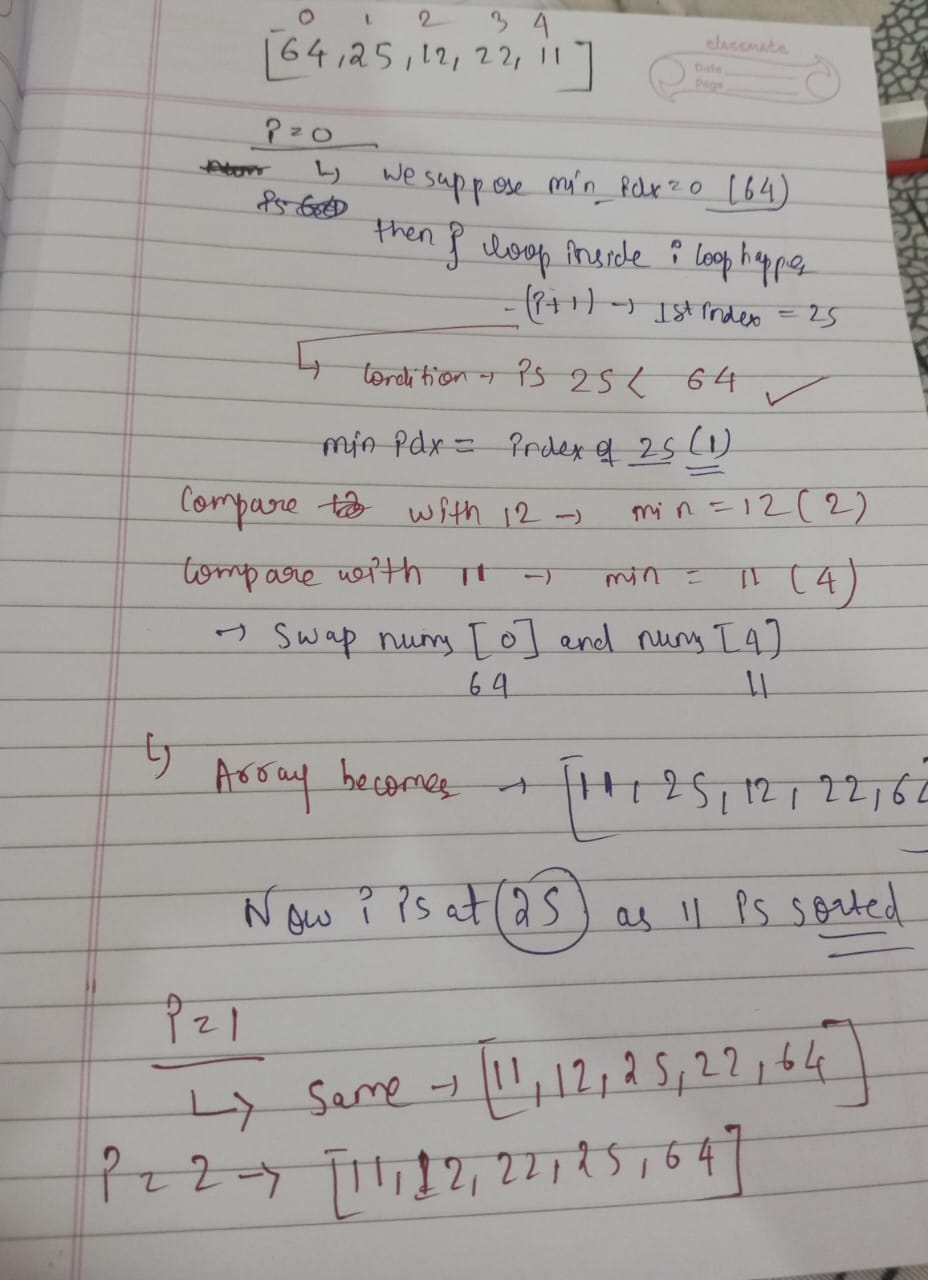 0 1 2 3 4
[64, 25, 12, 22, 11]
classmate
Date
Page
i = 0
↳ we suppose min_idx = 0 (64)
is
then j loop inside i loop happens
- (i+1) → 1st index = 25
↳ Condition → is 25 < 64 ✓
min idx = index of 25 (1)
Compare with 12 → min = 12 (2)
Compare with 11 → min = 11 (4)
→ Swap nums [0] and nums [4]
64 11
↳ Array becomes → [11, 25, 12, 22, 6
Now i is at 25 as 11 is sorted
i = 1
↳ Same → [11, 12, 25, 22, 64]
i = 2 → [11, 12, 22, 25, 64]